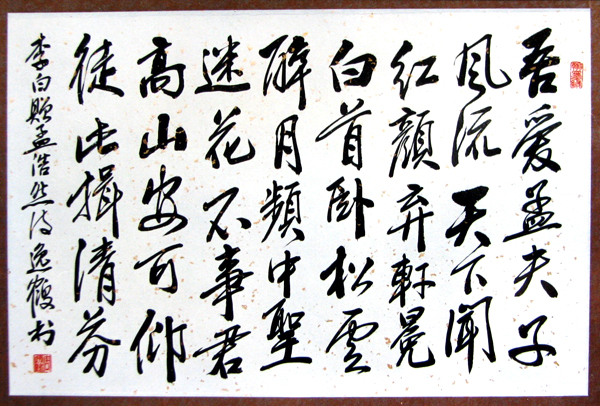 吾愛孟夫子
風流天下聞
紅顔弃軒冕
白首卧松雲
醉月頻中聖
迷花不事君
高山安可仰
徒此揖清芬
李白贈孟浩然詩逸鶴书